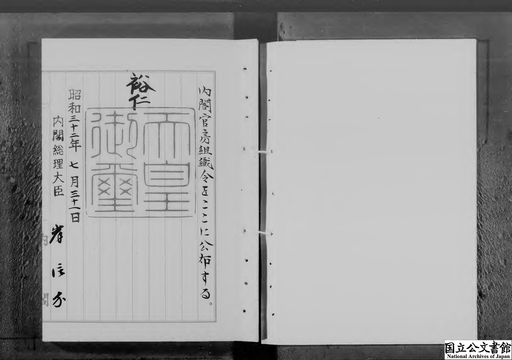 内閣官房組織令をここに公布する。
裕仁
天皇御璽
昭和三十二年七月三十一日
内閣総理大臣 岸信介
内閣
国立公文書館
National Archives of Japan